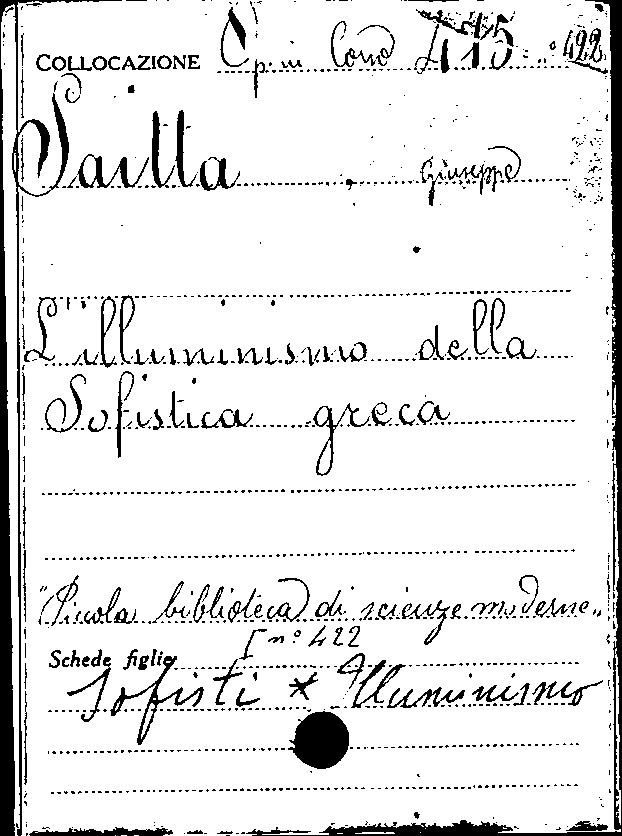 COLLOCAZIONE Op. in Cons 415 n° 422
Saitta, Giuseppe
L'illuminismo della
Sofistica greca
"Piccola biblioteca di scienze moderne"
n° 422
Schede figlie
Sofisti * Illuminismo